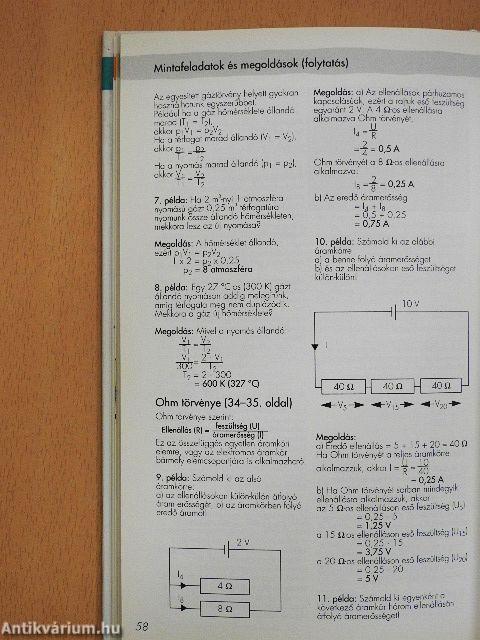 Mintafeladatok és megoldások (folytatás)
Az egyesített gáztörvény helyett gyakran
használhatunk egyszerűbbet.
Például ha a gáz hőmérséklete állandó
marad (T₁ = T₂),
akkor p₁V₁ = p₂V₂
Ha a térfogat marad állandó (V₁ = V₂),
akkor p₁/T₁ = p₂/T₂
Ha a nyomás marad állandó (p₁ = p₂),
akkor V₁/T₁ = V₂/T₂
7. példa: Ha 2 m³-nyi 1 atmoszféra
nyomású gázt 0,25 m³ térfogatúra
nyomunk össze állandó hőmérsékleten,
mekkora lesz az új nyomása?
Megoldás: A hőmérséklet állandó,
ezért p₁V₁ = p₂V₂
1 x 2 = p₂ x 0,25
p₂ = 8 atmoszféra
8. példa: Egy 27 °C-os (300 K) gázt
állandó nyomáson addig melegítünk,
amíg térfogata meg nem duplázódik.
Mekkora a gáz új hőmérséklete?
Megoldás: Mivel a nyomás állandó
V₁/T₁ = V₂/T₂
V₁/300 = 2 · V₁/T₂
T₂ = 2 · 300
= 600 K (327 °C)
Ohm törvénye (34–35. oldal)
Ohm törvénye szerint:
Ellenállás (R) = feszültség (U)/áramerősség (I)
Ez az összefüggés egyetlen áramköri
elemre, vagy az elektromos áramkör
bármely elemcsoportjára is alkalmazható.
9. példa: Számold ki az alsó
áramkörre:
a) az ellenállásokon különkülön átfolyó
áram erősségét, b) az áramkörben folyó
eredő áramot!
2 V
I₄
4 Ω
I₈
8 Ω
58
Megoldás: a) Az ellenállások párhuzamos
kapcsolásúak, ezért a rájuk eső feszültség
egyaránt 2 V. A 4 Ω-os ellenállásra
alkalmazva Ohm törvényét,
I₄ = U/R
= 2/4 = 0,5 A
Ohm törvényét a 8 Ω-os ellenállásra
alkalmazva:
I₈ = 2/8 = 0,25 A
b) Az eredő áramerősség
= I₄ + I₈
= 0,5 + 0,25
= 0,75 A
10. példa: Számold ki az alábbi
áramkörre
a) a benne folyó áramerősséget
b) és az ellenállásokon eső feszültséget
külön-külön!
10 V
I
40 Ω
40 Ω
40 Ω
V₅
V₁₅
V₂₀
Megoldás:
a) Eredő ellenállás = 5 + 15 + 20 = 40 Ω
Ha Ohm törvényét a teljes áramkörre
alkalmazzuk, akkor I = U/R = 10/40
= 0,25 A
b) Ha Ohm törvényét sorban mindegyik
ellenállásra alkalmazzuk, akkor
az 5 Ω-os ellenálláson eső feszültség (U₅)
= 0,25 · 5
= 1,25 V
a 15 Ω-os ellenálláson eső feszültség (U₁₅)
= 0,25 · 15
= 3,75 V
a 20 Ω-os ellenálláson eső feszültség (U₂₀)
= 0,25 · 20
= 5 V
11. példa: Számold ki egyenként a
következő áramkör három ellenállásán
átfolyó áramerősséget!
Antikvárium.hu